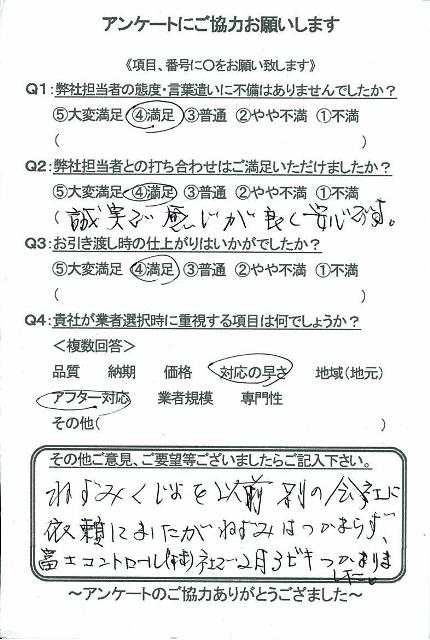 アンケートにご協力お願いします
《項目、番号に○をお願い致します》
Q1:弊社担当者の態度・言葉遣いに不備はありませんでしたか?
⑤大変満足 ④満足 ③普通 ②やや不満 ①不満
( )
Q2:弊社担当者との打ち合わせはご満足いただけましたか?
⑤大変満足 ④満足 ③普通 ②やや不満 ①不満
(誠実で感じが良く安心です。
Q3:お引き渡し時の仕上がりはいかがでしたか?
⑤大変満足 ④満足 ③普通 ②やや不満 ①不満
( )
Q4:貴社が業者選択時に重視する項目は何でしょうか?
<複数回答>
品質 納期 価格 対応の早さ 地域(地元)
アフター対応 業者規模 専門性
その他( )
その他ご意見、ご要望等ございましたらご記入下さい。
ねずみくじょを以前別の会社に
依頼しましたがねずみはつかまらず、
富士コントロール(株)社で2月3ビキつかまりま
した。
～アンケートのご協力ありがとうござました～